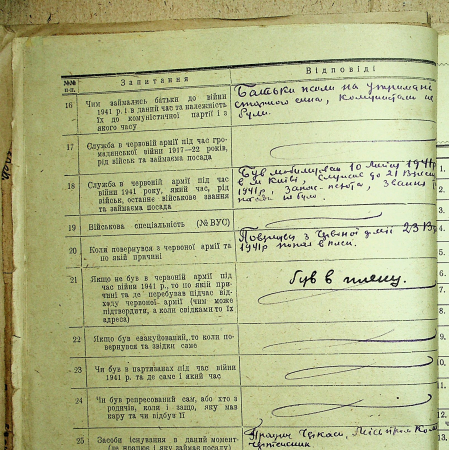 №№ п-п.
Запитання
Відповіді
16
Чим займались батьки до війни
1941 р. і в даний час та належність
їх до комуністичної партії і з
якого часу
Батьки жили на утриманні
старшого сина, комуністами не
були.
17
Служба в червоній армії під час гро-
мадянської війни 1917—22 років,
рід військ та займаєма посада
18
Служба в червоній армії під час
війни 1941 року, який час, рід
військ, останнє військове звання
та займаєма посада
Був мобілізован 10 липня 1941р
в м Києві, служив до 21 Вересня
1941р, запас-пехота, звання
посади не було.
19
Військова спеціальність (№ ВУС)
20
Коли повернувся з червоної армії та
по якій причині
1941р попав в плен.
21
Якщо не був в червоній армії під
час війни 1941 р., то по якій при-
чині та де перебував підчас відхо-
ду червоної армії (чим може
підтвердити, а коли свідками то їх
адреса)
був в плену.
22
Якщо був евакуйований, то коли по-
вернувся та звідки саме
23
Чи був в партизанах під час війни
1941 р. та де саме і який час
24
Чи був репресований сам, або хто з
родичів, коли і защо, яку мав
кару та чи відбув її
25
Засоби існування в даний момент
(де працює і яку займає посаду)
1.
2.
3.
4.
5.
6.
7.
9.
10.
11.
12.
13.